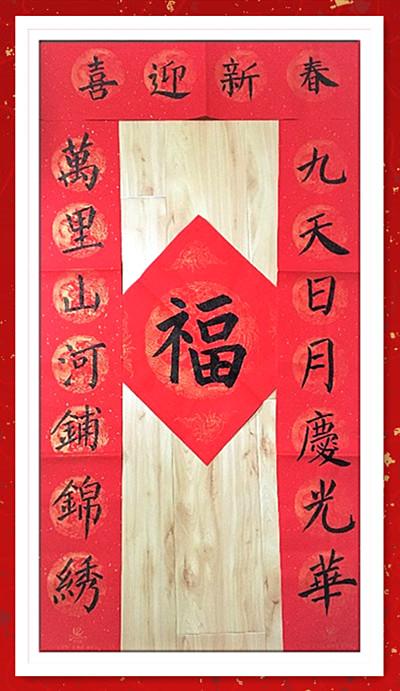 喜迎新春
萬里山河鋪錦綉
九天日月慶光華
福